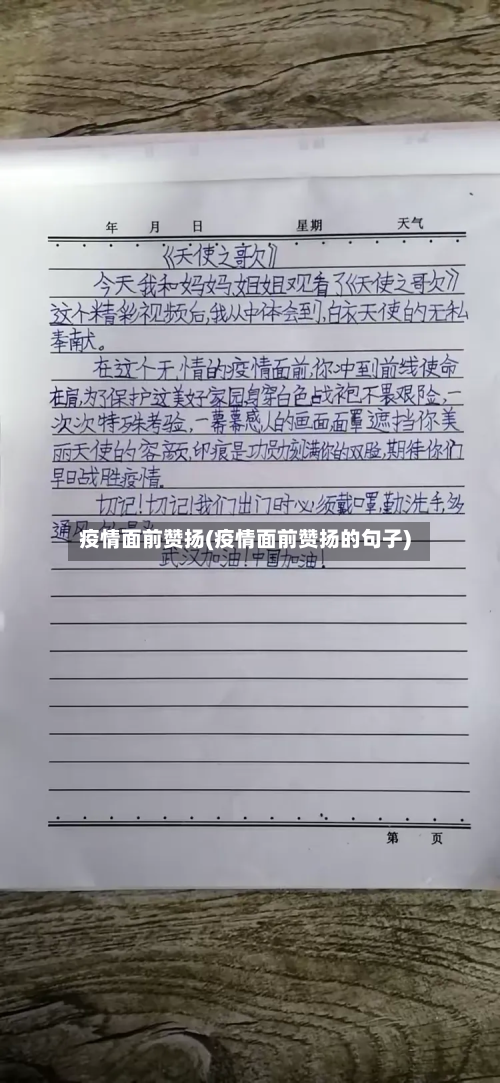 年 月 日 星期 天气
《天使之歌》
今天我和妈妈、姐姐观看了《天使之歌》
这个精彩视频后,我从中体会到,白衣天使的无私
奉献。
在这个无情的疫情面前,你冲到前线使命
在肩,为了保护这美好家园身穿白色战袍不畏艰险,一
次次特殊考验,一幕幕感人的画面面罩遮挡你美
丽天使的容颜,印痕是功勋刻满你的双脸,期待你们
早日战胜疫情。
切记!切记!我们出门时必须戴口罩,勤洗手,多
通风
疫情面前赞扬(疫情面前赞扬的句子)
武汉加油!中国加油!
第 页